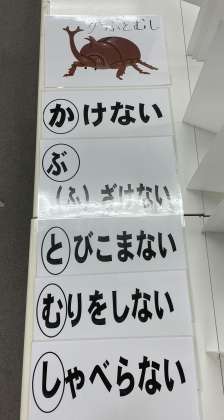 かぶとむし
かけない
ぶ
(ふ)ざけない
とびこまない
むりをしない
しゃべらない